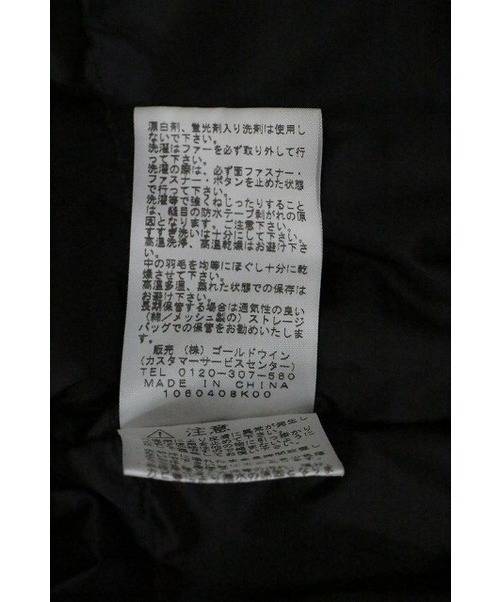 漂白剤、蛍光剤入り洗剤は使用し
ないで下さい。
洗濯はファーを必ず取り外して行
って下さい。
洗濯の際は、必ず面ファスナー・
ファスナー・ボタンを止めた状態
で行って下さい。
洗濯等で強くねじったりすること
は、縫目の防水テープ剥がれの原
因となります。ご注意下さい。
すすぎ洗いは十分にして下さい。
高温洗浄、高温乾燥はお避け下さ
い。
中の羽毛を均等にほぐし十分に乾
燥させて下さい。
高温多湿、蒸れた状態での保存は
お避け下さい。
長期保管する場合は通気性の良い
(綿/メッシュ製の)ストレージ
バッグでの保管をお勧めいたしま
す。
販売 (株)ゴールドウイン
(カスタマーサービスセンター)
TEL 0120-307-560
MADE IN CHINA
1060408K00
注意